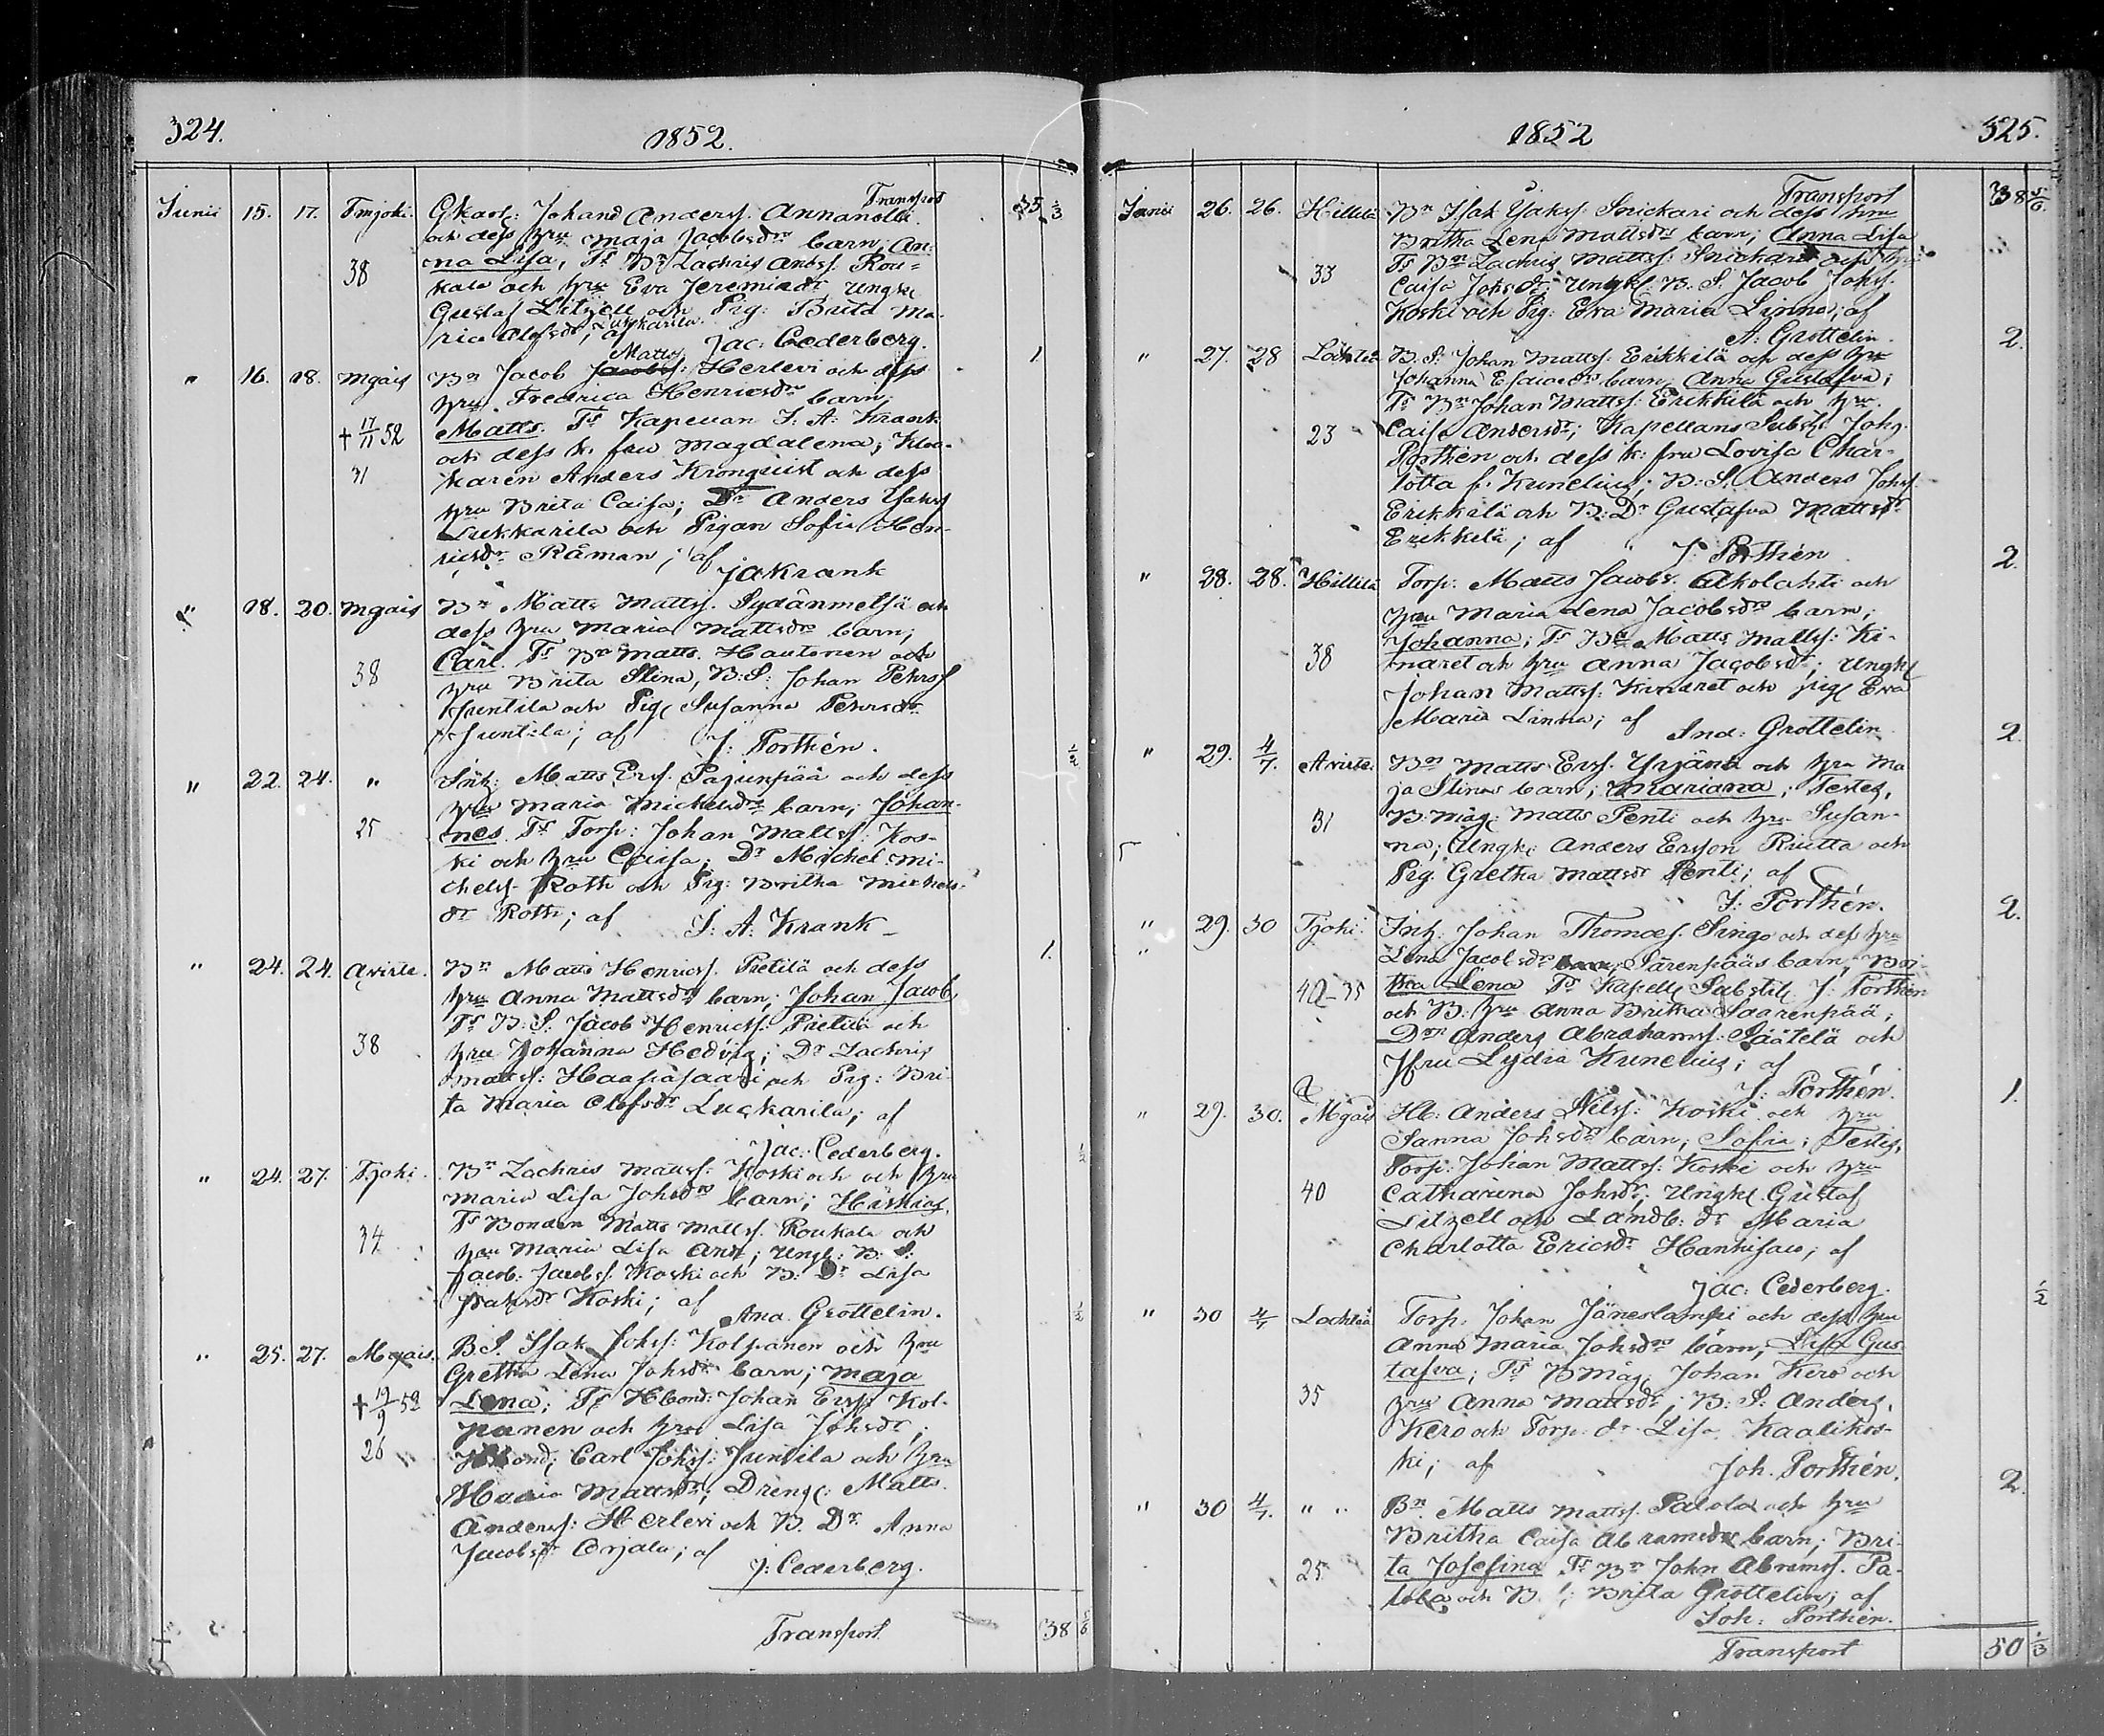 324.
1852.
Transport 35 1/3
Junii 15. 17. Tmjoki. Gkarl: Johan Anderss. Annanolli
och dess hru Maja Jacobsdrs barn; An-
38 na Lisa, Ts Bn Zachris Anderss. Rou-
kala och hru Eva Jeremiædr Ungk:
Gustaf Litzell och Pig: Brita Ma-
ria Olofsdr, Luckarila. af
Jac: Cederberg. 1.
" 16. 18. Mgais Bn Jacob Jacobss: Matts. Herlevi och dess
hru Fredrica Henricsdrs barn;
† 17/11 52 Matts. Ts Kapellan J: A: Krank
och dess k. fru Magdalena; Kloc-
31 karen Anders Kronquist och dess
hru Brita Caisa; Dr Anders
Luckarila och Pigan Sofia Hen-
ricsdr Råman; af
J A Krank
" 18. 20. Mgais Bn Matts Mattss. Sydänmetsä och
dess hru Maria Mattsdrs barn;
Carl. Ts Bn Matts. Hautonen och
38 hru Brita Stina, B: S: Johan Pehrss
Juntila och Pig: Susanna Pehrsdr
Juntila; af J: Porthén. 1/2
" 22. 24. " Inh: Matts Erss. Pajunpää och dess
hru Maria Michelsdrs barn; Johan-
25 nes. Ts Torp: Johan Mattss: Kos-
ki och hru Caisa; Dr Michel Mi-
chelss Roth och Pig: Britha Michels-
dr Roth; af J: A: Krank 1.
" 24. 24. Aviste. Bn Matts Henricss. Pietilä och dess
hru Anna Mattsdrs barn; Johan Jacob,
Ts B: S: Jacob Henricss: Pietilä och
38 hru Johanna Hedvig; Dr Zachris
Mattss: Haapasaari och Pig: Bri-
ta Maria Olofsdr Luckarila; af
Jac: Cederberg. 1/2
" 24. 27. Tjoki. Bn Zachris Mattss: Koski och och hru
Maria Lisa Johsdrs barn; Hiskias,
Ts Bonden Matts Mattss. Roukala och
34 hru Maria Lisa And; Ungk: B: S:
Jacob Jacobss. Koski och B: Dr Lisa
Isaksdr Koski; af
And. Grottelin. 1/2
" 25. 27. Mgais. B.S. Isak Johss: Kolpanen och hru
Gretha Lena Johsdrs barn; Maja
† 19/9 52 Lena; Ts Hbond: Johan Ersss Kol-
panen och hru Lisa Johsdr;
26 Hbond; Carl Johss: Juntila och hru
Maria Mattsdr; Dreng: Matts
Anderss: Herlevi och B. Dr. Anna
Jacobsdr Orjala; af J: Cederberg.
Transport 38 5/6
1852
325.
Transport 38 5/6.
Junii 26. 26. Hillilä Bn Isak Isakss. Snickari och dess hru
Britha Lena Mattsdrs barn; Anna Lisa
Ts Bn Zachris Mattss: Snickari och hru
33 Caisa Johsdr; Ungk: B. S. Jacob Johss.
Koski och Pig: Eva Maria Linna; af
A: Grottelin. 2.
" 27. 28 Lochteå B. S. Johan Mattss. Erikkilä och dess hru
Johanna Esaiædrs barn; Anna Gustafva;
Ts Bn Johan Mattss. Erikkilä och hru
23 Caisa Andersdr; Kapellans Subst: Joh:
Porthén och dess k: fru Lovisa Char-
lotta f. Kunelius; B: S: Anders Johss
Erikkilä och B: Dr Gustafva Mattsdr
Erikkilä; af J: Porthén 2.
" 28. 28. Hillilä Torp: Matts Jacobs. Alkolahti och
hru Maria Lena Jacobsdrs barn;
Johanna; Ts Bn Matts Mattss: Ki-
38 naret och hru Anna Jacobsdr; Ungk:
Johan Mattss: Kinaret och pig: Eva
Maria Linna; af And: Grottelin 2.
" 29. 4/7. Aviste. Bn Matts Ersss. Yrjänä och hru Ma
ja Stinas barn; Mariana; Testes,
31 B: Måg: Matts Penti och hru Susan-
na; Ungk: Anders Ersson Riutta och
Pig: Gretha Mattsdr Penti; af
J: Porthén. 2.
" 29. 30 Tjoki. Inh: Johan Thomass. Singo och dess hru
" Lena Jacobsdr Särenpääs barn; Bri-
40-35 tha Lena Ts Kapell: Substit: J: Porthén
och B: hru Anna Britha Saarenpää;
Drn Anders Abrahamss. Säätelä och
Jfru Lydia Kunelius; af
J: Porthén. 1.
" 29. 30. Mgais Hb: Anders Nilss: Koski och hru
Sanna Johsdrs barn; Sofia; Testes,
Torp: Johan Mattss: Koski och hru
40 Catharina Johsdr; Ungk: Gustaf
Litzell och Landb: dr Maria
Charlotta Ericsdr Hanhisalo; af
Jac: Cederberg. 1/2
" 30 4/7 Lochteå Torp: Johan Jäneslampi och dess hru
Anna Maria Johsdrs barn; Lisa Gus-
tafva; Ts B Måg: Johan Kero och
35 hru Anna Mattsdr; B: S: Anders,
Kero och Torp: dr Lisa Kaalikos-
ki; af Joh. Porthén. 2.
" 30 4/7. " " Bn. Matts Mattss. Palola och hru
Britha Caisa Abramsdrs barn; Bri-
25. ta Josefina Ts Bn John Abramss. Pa-
lola och B. Brita Grottelin; af
Joh: Porthén.
Transport 50 1/3